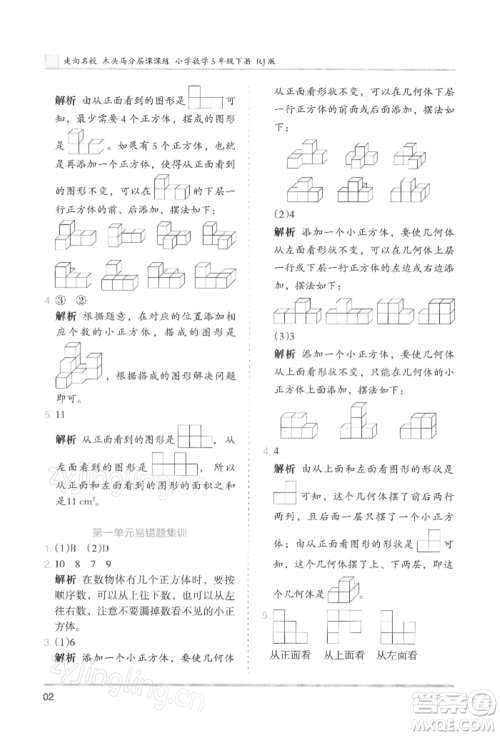 走向名校 木头马分层课课练 小学数学5年级下册 RJ版
解析 由从正面看到的图形是
可
知,最少需要4个正方体,摆成的图形
是
。如果有5个正方体,也就是
再添加一个正方体,使得从正面看到
的图形不变,可以在
的下层一
行正方体的前、后添加,摆法如下:
4. ③ ②
解析 根据题意,在对应的位置添加相
应个数的小正方体,搭成的图形是
,根据搭成的图形解决问题
即可。
5. 11
解析 从正面看到的图形是
,从
左面看到的图形是
,所以,从
正面和左面看到的图形的面积之和是
11 cm²。
第一单元易错题集训
1. (1)B (2)D
2. 10 8 7 9
解析 在数物体有几个正方体时,要按
顺序数,可以从上往下数,也可以从左
往右数,注意不要漏掉数看不见的小正
方体。
3. (1)6
解析 添加一个小正方体,要使几何体
从正面看形状不变,可以在几何体下层
一行正方体的前面或后面添加,摆法如
下:
(2)4
解析 添加一个小正方体,要使几何体
从左面看形状不变,可以在几何体上层
一行或下层一行正方体的左边或右边
添加,摆法如下:
(3)3
解析 添加一个小正方体,要使几何体
从上面看形状不变,可以在几何体上层
添加,摆法如下:
4. 4
解析 由从上面和左面看图形的形状
可知,这个几何体的下层是前后两行
两列,
,且从左面看到的图形是
,因此,从上面看到的图形
是
。
5.
从正面看 从上面看 从左面看
02
zyjl.cn
zyjingling.com
答案圈
MXQE.COM